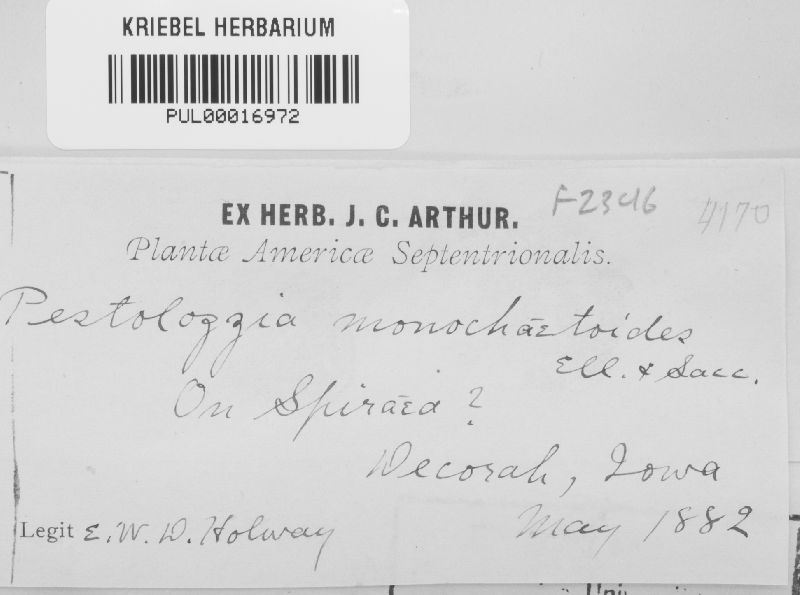 KRIEBEL HERBARIUM
PUL00016972
EX HERB. J. C. ARTHUR. F2346 4170
Plantæ Americæ Septentrionalis.
Pestolozzia monochætoides
Ell. & Sacc.
On Spiræa?
Decorah, Iowa
Legit E. W. D. Holway May 1882